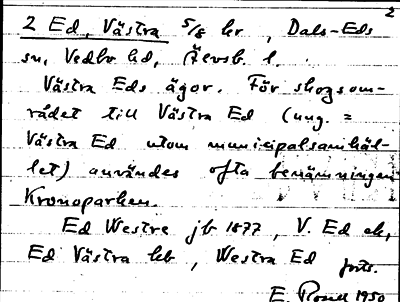 2
2 Ed, Västra 5/8 hr, Dals-Eds
sn, Vedbo hd, Älvsb. l.
Västra Eds ägor. För skogsom-
rådet till Västra Ed (ung. =
Västra Ed utom municipalsamhäl-
let) användes ofta benämningen
Kronoparken.
Ed Westre jb 1877, V. Ed ek,
Ed Västra hb, Westra Ed forts.
E. 1950